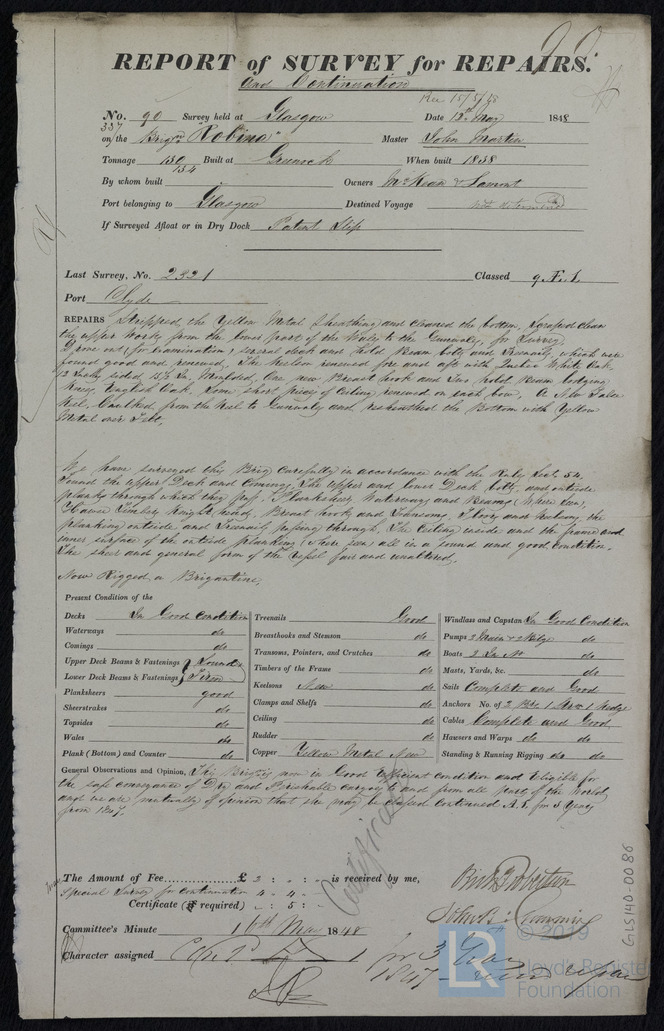 REPORT of SURVEY for REPAIRS.
and Continuation
Rec 15/5/48
No. 90 Survey held at Glasgow Date 12th May 1848
337
on the Brigne "Robina" Master John Martin
Tonnage 130 Built at Greenock When built 1838
134
By whom built Owners McKean & Lamont
Port belonging to Glasgow Destined Voyage not determined
If Surveyed Afloat or in Dry Dock Patent Slip
Last Survey, No. 2321 Classed 9 Æ 1
Port Clyde
REPAIRS Stripped the Yellow Metal Sheathing and cleaned the bottom, Scraped clean
the upper works from the lower part of the Wales to the Gunwale, for Survey,
Drove out, for Examination, several deck and hold Beam bolts and Treenails, which were
found good and renewed, The keelson renewed fore and aft with Quebec White Oak,
12 Inches sided, 13½ In. Moulded, One new Breast hook and Two hold Beam lodging
knees, English Oak, Some short pieces of Ceiling renewed on each bow, A New False
keel, Caulked from the keel to Gunwale and resheathed the Bottom with Yellow
Metal over Felt,
We have surveyed this Brig carefully in accordance with the Rules Sect. 54,
Found the upper Deck and Comings, The upper and lower Deck bolts and outside
planks through which they pass, Planksheers, Waterways and Beams (Where seen,
Hawse Timbers, Knight heads, Breast hooks and Transoms, Floors and keelsons, the
planking outside and Treenails passing through, The Ceiling inside and the frame and
inner surface of the outside planking, where seen all in a sound and good condition,
The sheer and general form of the vessel fair and unaltered,
Now Rigged a Brigantine,
Present Condition of the
Decks In Good Condition
Waterways do
Comings do
Upper Deck Beams & Fastenings } Sound &
Lower Deck Beams & Fastenings } Firm
Planksheers good
Sheerstrakes do
Topsides do
Wales do
Plank (Bottom) and Counter do
Treenails Good
Breasthooks and Stemson do
Transoms, Pointers, and Crutches do
Timbers of the Frame do
Keelsons New do
Clamps and Shelfs do
Ceiling do
Rudder do
Copper Yellow Metal New
Windlass and Capstan In Good Condition
Pumps 2 Main & 2 Bilge do
Boats 2 In No do
Masts, Yards, &c. do
Sails Complete and Good
Anchors No. of 2 Brs 1 Strm 1 Kedge
Cables Complete and Good
Hausers and Warps do do
Standing & Running Rigging do do
General Observations and Opinion, This Brig is now in Good efficient condition and Eligible for
the safe conveyance of Dry and Perishable cargoes to and from all parts of the World
and we are mutually of opinion that she may be classed continued A.1. for 3 Years
from 1847.
Certificate
The Amount of Fee £ 2 : - : - is received by me,
Special Survey for Continuation 4 : 4 : -
Certificate (if required) - : 5 : -
Committee's Minute 16th May 1848
Character assigned
for 3 Years
1847
GLS140-0086
LR
© 2019
Lloyd's Register
Foundation